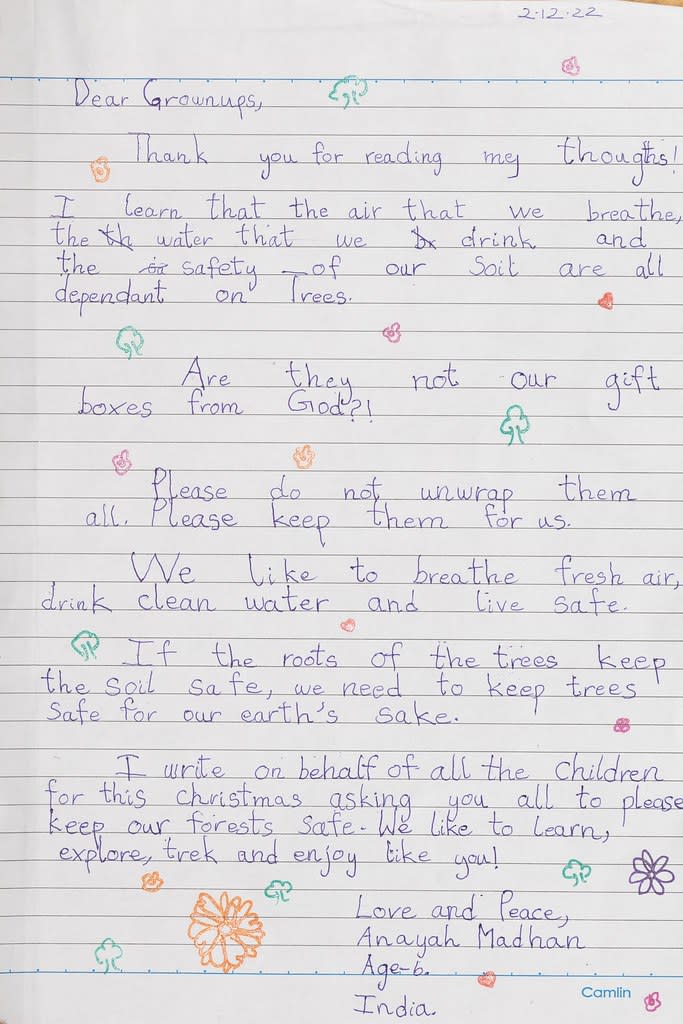 2.12.22
Dear Grownups,
Thank you for reading my thougths!
I learn that the air that we breathe,
the th water that we b drink and
the safety of our Soil are all
dependant on Trees.
Are they not our gift
boxes from God?!
Please do not unwrap them
all. Please keep them for us.
We like to breathe fresh air,
drink clean water and live safe.
If the roots of the trees keep
the soil safe, we need to keep trees
safe for our earth's sake.
I write on behalf of all the children
for this christmas asking you all to please
keep our forests safe. We like to learn,
explore, trek and enjoy like you!
Love and Peace,
Anayah Madhan
Age-6.
India.
Camlin